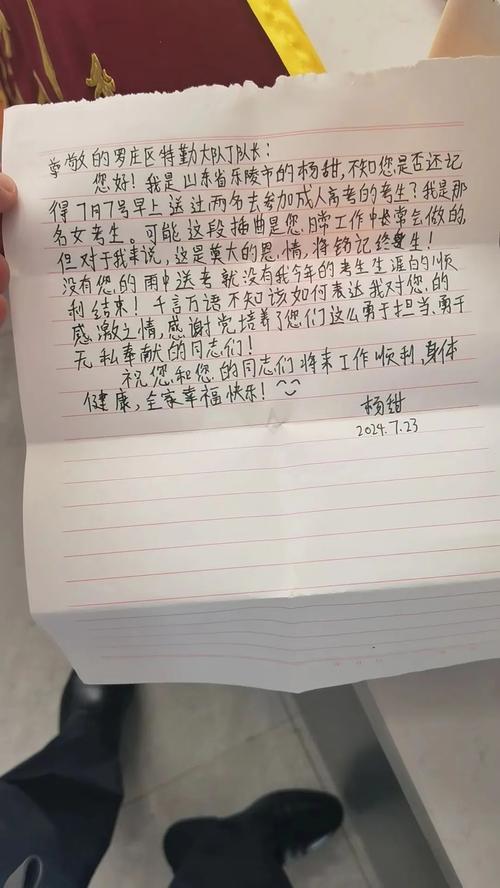 尊敬的罗庄区特勤大队队长：
您好！我是山东省乐陵市的杨甜，不知您是否还记
得7月7号早上送过两名去参加成人高考的考生？我是那
名女考生。可能这段插曲是您日常工作中常会做的，
但对于我来说，这是莫大的恩情，将铭记终生！
没有您的雨中送考就没有我今年的考生生涯的顺
利结束！千言万语不知该如何表达我对您的
感激之情，感谢党培养了您们这么勇于担当、勇于
无私奉献的同志们！
祝您和您的同志们将来工作顺利，身体
健康，全家幸福快乐！
杨甜
2024.7.23